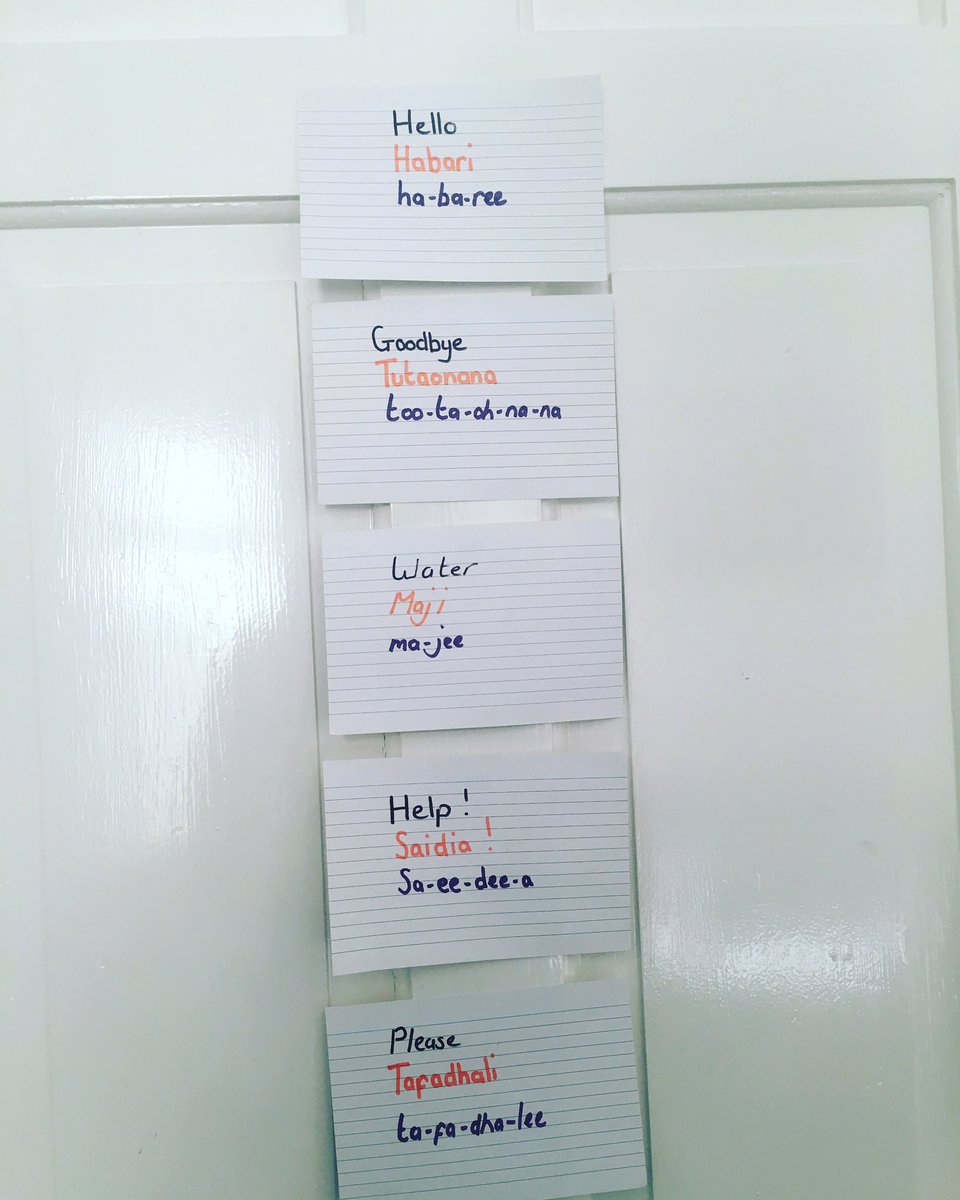 Hello
Habari
ha-ba-ree
Goodbye
Tutaonana
too-ta-oh-na-na
Water
Maji
ma-jee
Help!
Saidia!
Sa-ee-dee-a
Please
Tafadhali
ta-fa-dha-lee